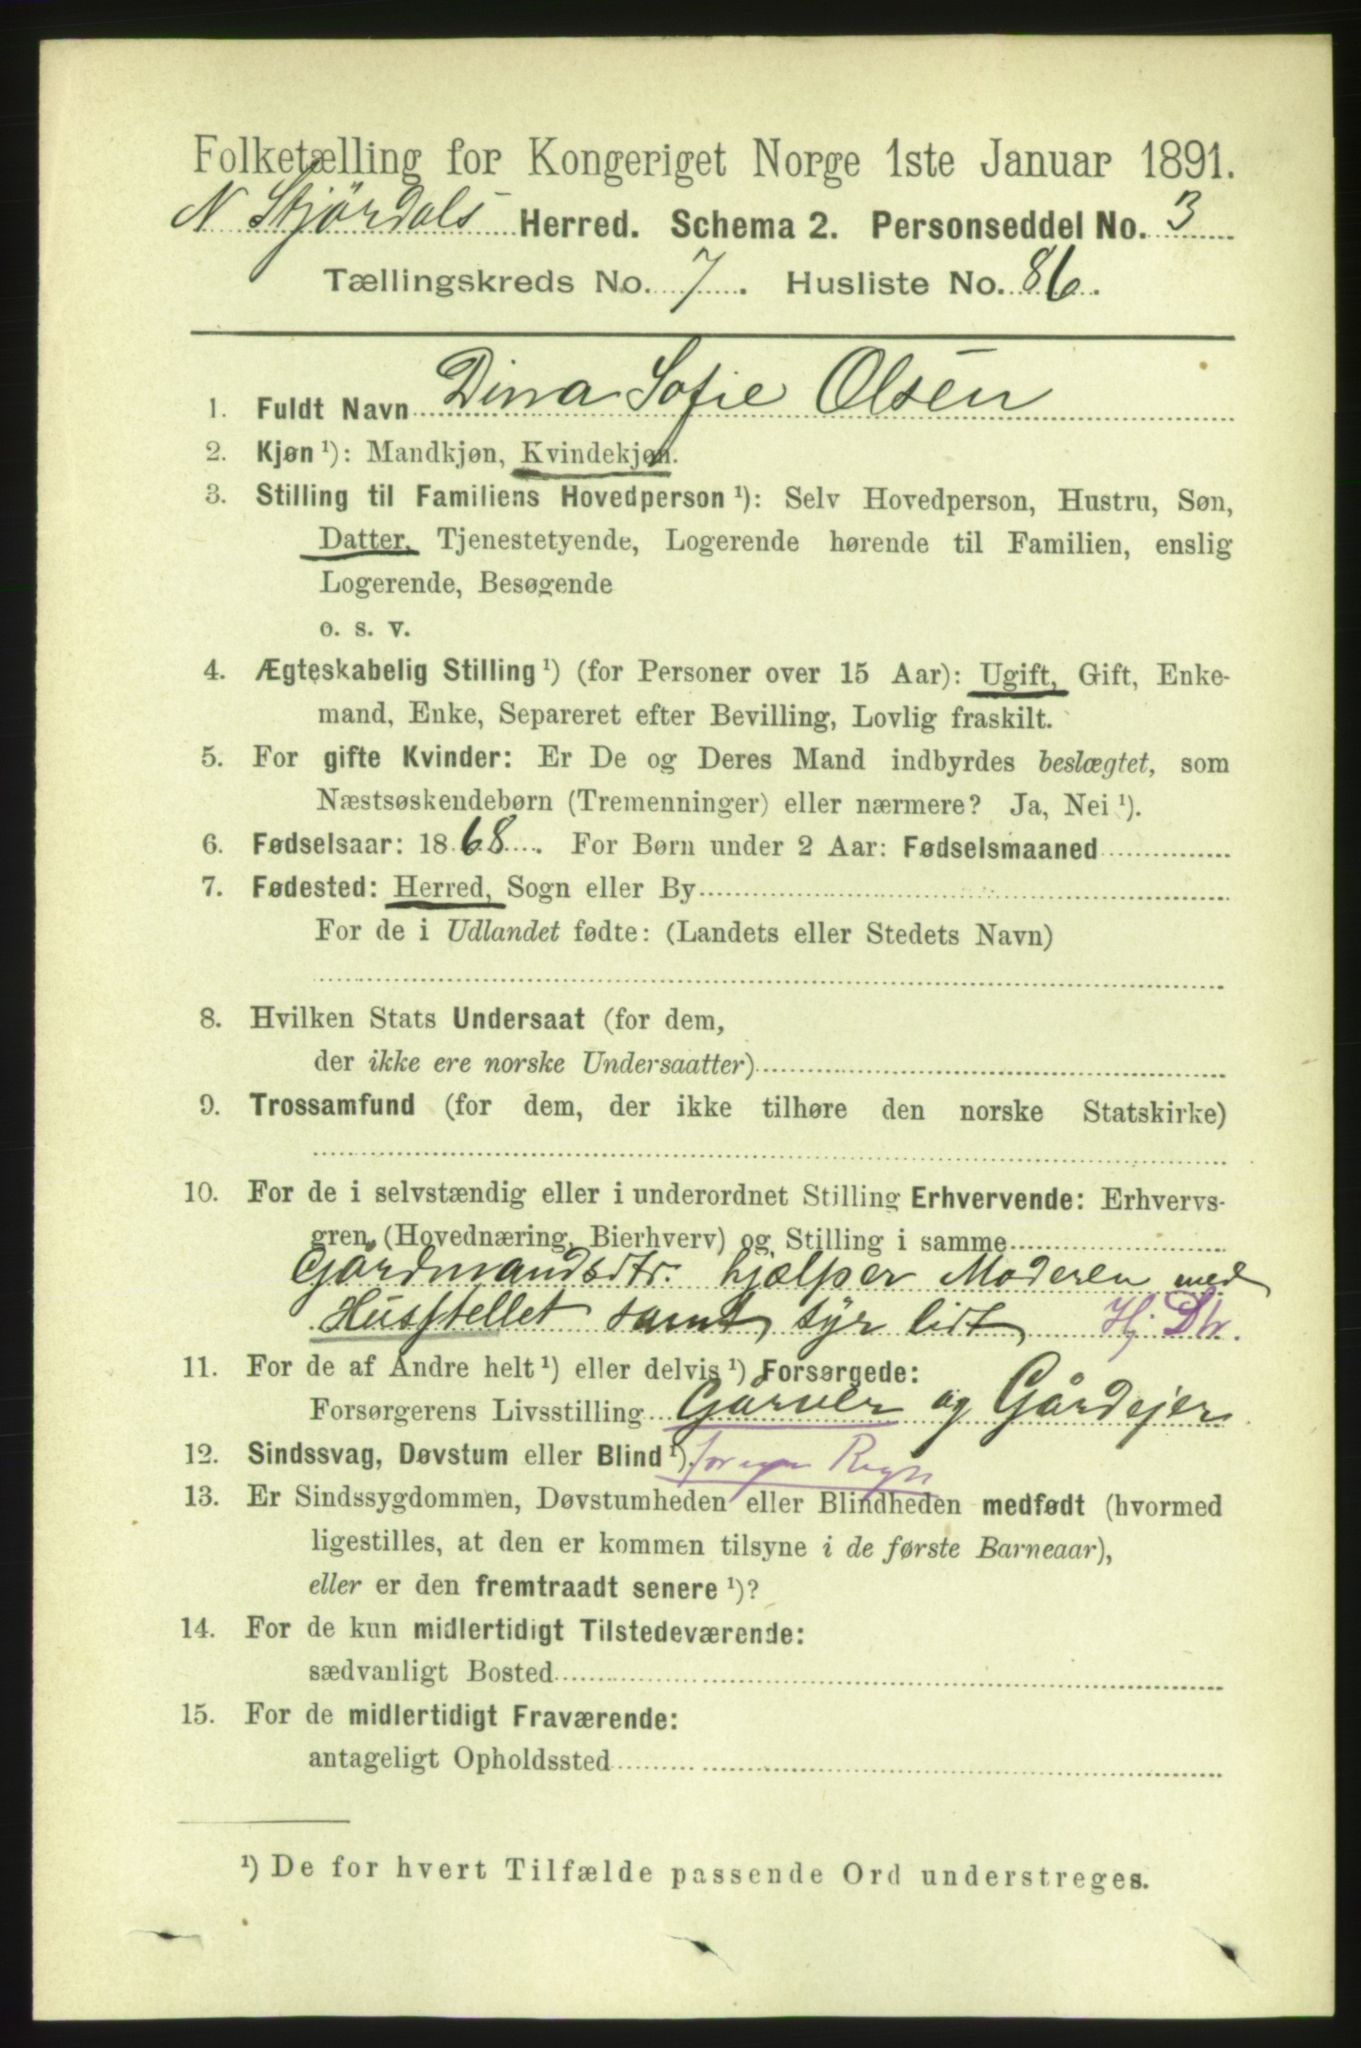 Folketælling for Kongeriget Norge 1ste Januar 1891.
N Stjördals Herred. Schema 2. Personseddel No. 3
Tællingskreds No. 7. Husliste No. 86.
1. Fuldt Navn Dina Sofie Olsen
2. Kjøn ¹): Mandkjøn, Kvindekjøn.
3. Stilling til Familiens Hovedperson ¹): Selv Hovedperson, Hustru, Søn,
Datter, Tjenestetyende, Logerende hørende til Familien, enslig
Logerende, Besøgende
o. s. v.
4. Ægteskabelig Stilling ¹) (for Personer over 15 Aar): Ugift, Gift, Enke-
mand, Enke, Separeret efter Bevilling, Lovlig fraskilt.
5. For gifte Kvinder: Er De og Deres Mand indbyrdes beslægtet, som
Næstsøskendebørn (Tremenninger) eller nærmere? Ja, Nei ¹).
6. Fødselsaar: 1868. For Børn under 2 Aar: Fødselsmaaned
7. Fødested: Herred, Sogn eller By
For de i Udlandet fødte: (Landets eller Stedets Navn)
8. Hvilken Stats Undersaat (for dem,
der ikke ere norske Undersaatter)
9. Trossamfund (for dem, der ikke tilhøre den norske Statskirke)
10. For de i selvstændig eller i underordnet Stilling Erhvervende: Erhvervs-
gren (Hovednæring, Bierhverv) og Stilling i samme
Gårdmandsdtr. hjælper Moderen med
Husstellet samt syr lidt H. Dtr.
11. For de af Andre helt ¹) eller delvis ¹) Forsørgede:
Forsørgerens Livsstilling Garver og Gårdejer
12. Sindssvag, Døvstum eller Blind ¹). for egen Regn
13. Er Sindssygdommen, Døvstumheden eller Blindheden medfødt (hvormed
ligestilles, at den er kommen tilsyne i de første Barneaar),
eller er den fremtraadt senere ¹)?
14. For de kun midlertidigt Tilstedeværende:
sædvanligt Bosted
15. For de midlertidigt Fraværende:
antageligt Opholdssted
¹) De for hvert Tilfælde passende Ord understreges.